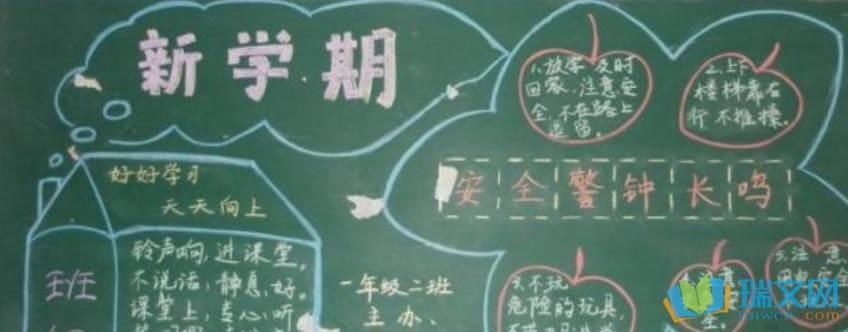 新学期
好好学习
天天向上
铃声响,进课堂。
不说话,静息好。
课堂上,专心听
一年级二班
主办、
1、放学及时
回家,注意安
全,不在路上
逗留。
2、上下
楼梯靠右
行,不推搡。
安全警钟长鸣
3、不玩
危险的玩具,
注意
全。
5、注意
瑞文网
ruiwen.com